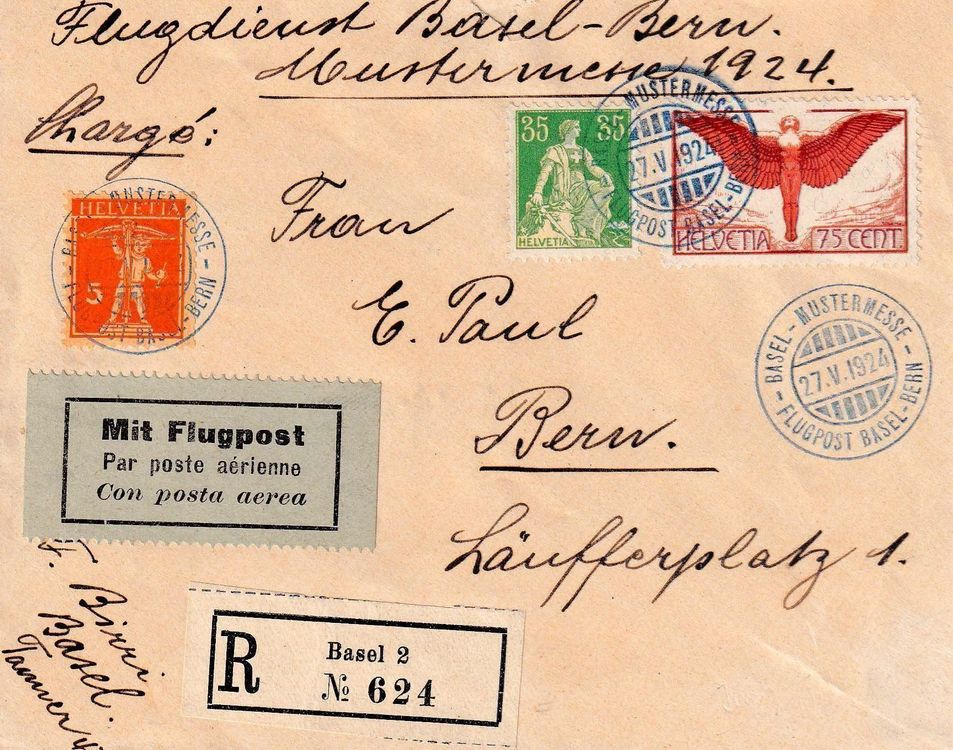 Flugdienst Basel-Bern.
Mustermesse 1924.
Chargé:
Frau
E. Paul
Bern.
Läufferplatz 1.
35 35
HELVETIA
HELVETIA 75 CENT.
MUSTERMESSE
27.V.1924
FLUGPOST BASEL-BERN
HELVETIA
5
MUSTERMESSE
BASEL-BERN
BASEL - MUSTERMESSE
27.V.1924
FLUGPOST BASEL-BERN
Mit Flugpost
Par poste aérienne
Con posta aerea
R
Basel 2
№ 624
F. Birri
Basel.